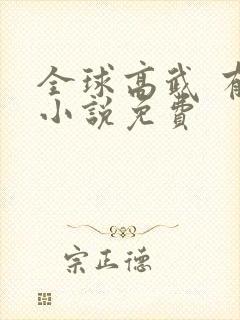 全球高武 有
小說免費
宗正德